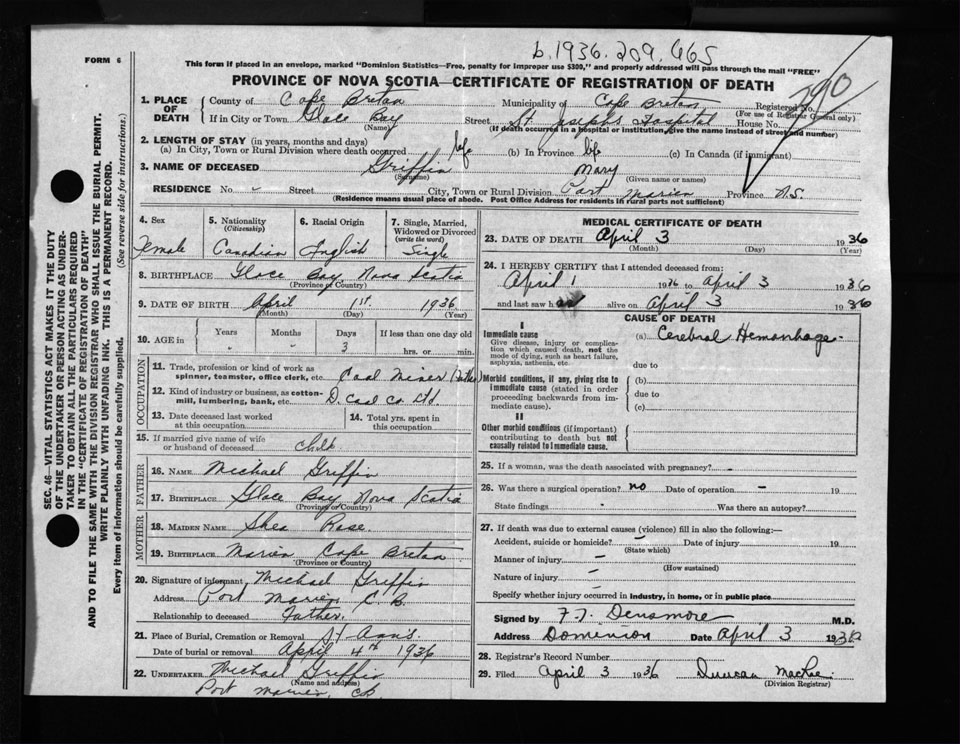 b. 1936. 209. 665
FORM 6
This form if placed in an envelope, marked "Dominion Statistics—Free, penalty for improper use $300," and properly addressed will pass through the mail "FREE"
PROVINCE OF NOVA SCOTIA—CERTIFICATE OF REGISTRATION OF DEATH
1. PLACE OF DEATH County of Cape Breton Municipality of Cape Breton Registered No.
(For use of Registrar General only)
If in City or Town Glace Bay Street St. Josephs Hospital House No.
(Name) (If death occurred in a hospital or institution give the name instead of street and number)
2. LENGTH OF STAY (in years, months and days)
(a) In City, Town or Rural Division where death occurred life (b) In Province life (c) In Canada (if immigrant)
3. NAME OF DECEASED Griffin Mary
(Surname) (Given name or names)
RESIDENCE No - Street City, Town or Rural Division Port Morien Province N.S.
(Residence means usual place of abode. Post Office Address for residents in rural parts not sufficient)
4. Sex Female
5. Nationality (Citizenship) Canadian
6. Racial Origin English
7. Single, Married, Widowed or Divorced (write the word) Single
8. BIRTHPLACE Glace Bay, Nova Scotia
(Province or Country)
9. DATE OF BIRTH April 1st. 1936
(Month) (Day) (Year)
10. AGE in Years " Months " Days 3 If less than one day old hrs. or min.
OCCUPATION
11. Trade, profession or kind of work as spinner, teamster, office clerk, etc. Coal Miner (Father)
12. Kind of industry or business, as cotton-mill, lumbering, bank, etc. D. Coal Co. Ltd.
13. Date deceased last worked at this occupation
14. Total yrs. spent in this occupation
15. If married give name of wife or husband of deceased Child
FATHER
16. NAME Michael Griffin
17. BIRTHPLACE Glace Bay, Nova Scotia
(Province or Country)
MOTHER
18. MAIDEN NAME Shea Rose.
19. BIRTHPLACE Morien Cape Breton
(Province or Country)
20. Signature of informant Michael Griffin
Address Port Morien C.B.
Relationship to deceased Father.
21. Place of Burial, Cremation or Removal St-Ann's.
Date of burial or removal April 4th 1936
22. UNDERTAKER Michael Griffin
(Name and address)
Port Morien, CB
MEDICAL CERTIFICATE OF DEATH
23. DATE OF DEATH April 3 1936
(Month) (Day) (Year)
24. I HEREBY CERTIFY that I attended deceased from:
April 1 1936 to April 3 1936
and last saw h alive on April 3 1936
CAUSE OF DEATH
I
Immediate cause
Give disease, injury or complication which caused death, not the mode of dying, such as heart failure, asphyxia, asthenia, etc.
(a) Cerebral Hemorrhage.
due to
Morbid conditions, if any, giving rise to immediate cause (stated in order proceeding backwards from immediate cause).
(b)
due to
(c)
II
Other morbid conditions (if important) contributing to death but not causally related to immediate cause.
25. If a woman, was the death associated with pregnancy? -
26. Was there a surgical operation? no Date of operation - 19
State findings Was there an autopsy?
27. If death was due to external causes (violence) fill in also the following:—
Accident, suicide or homicide? - Date of injury 19
(State which)
Manner of injury -
(How sustained)
Nature of injury -
Specify whether injury occurred in industry, in home, or in public place
Signed by F. J. Densmore M.D.
Address Dominion Date April 3 1936
28. Registrar's Record Number
29. Filed April 3 1936 Duncan MacRae
(Division Registrar)
SEC. 46—VITAL STATISTICS ACT MAKES IT THE DUTY
OF THE UNDERTAKER OR PERSON ACTING AS UNDER-
TAKER TO OBTAIN ALL THE PARTICULARS REQUIRED
IN THE "CERTIFICATE OF REGISTRATION OF DEATH"
AND TO FILE THE SAME WITH THE DIVISION REGISTRAR WHO SHALL ISSUE THE BURIAL PERMIT.
WRITE PLAINLY WITH UNFADING INK. THIS IS A PERMANENT RECORD.
Every item of information should be carefully supplied. (See reverse side for instructions.)